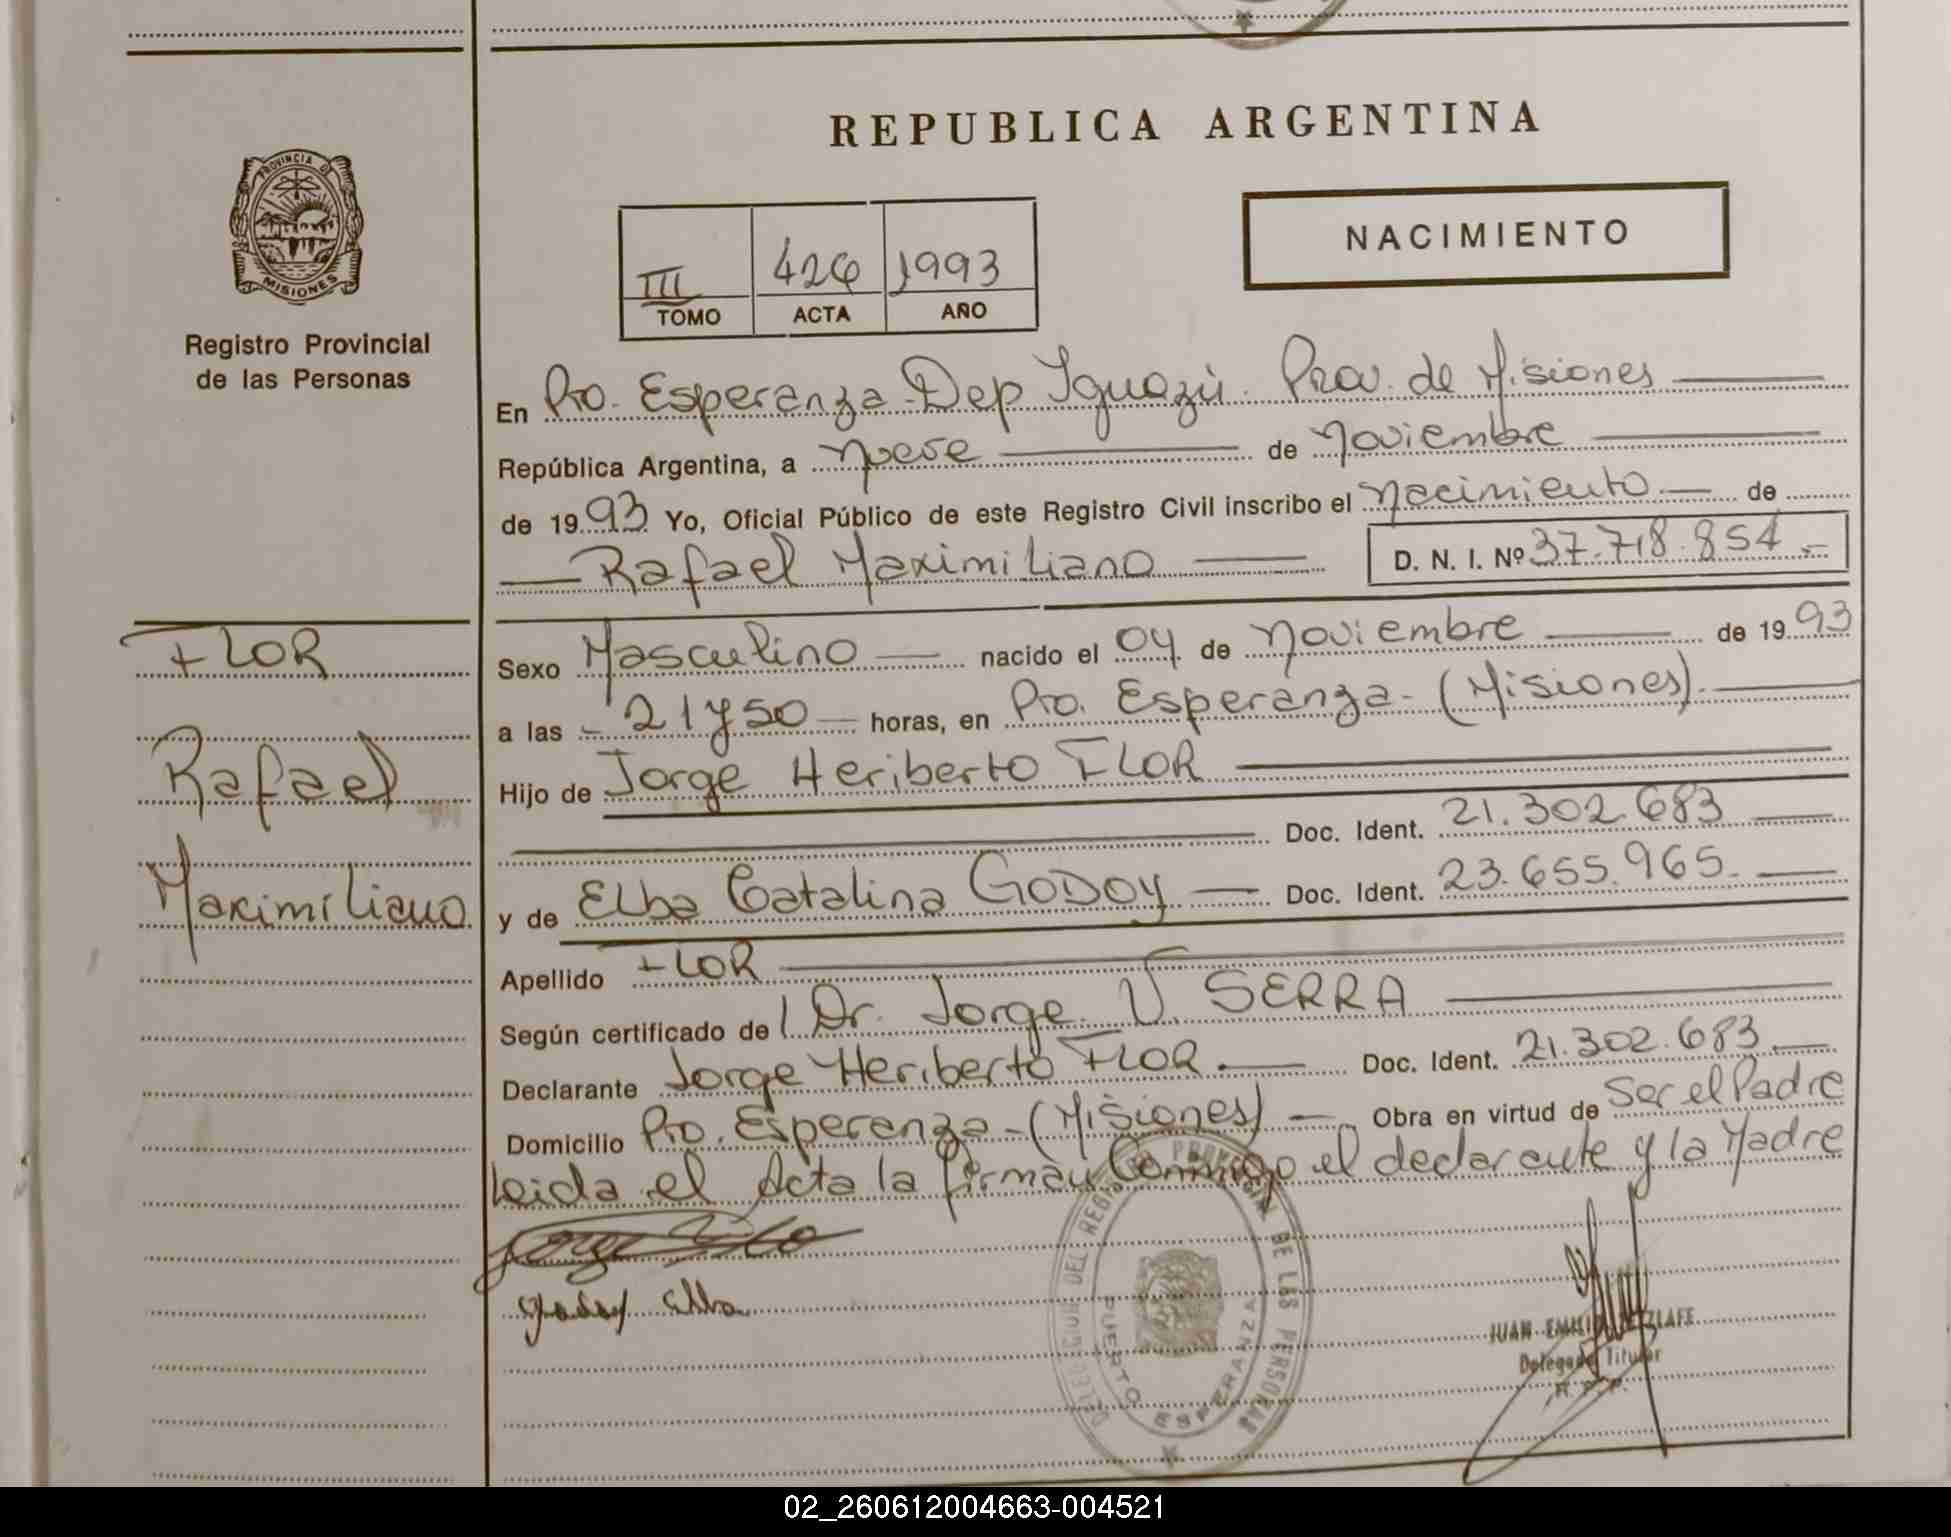 REPUBLICA ARGENTINA
PROVINCIA DE
MISIONES
Registro Provincial
de las Personas
III 426 1993
TOMO ACTA AÑO
NACIMIENTO
En Pto. Esperanza - Dep Iguazú. Prov. de Misiones
República Argentina, a nueve de noviembre
de 1993 Yo, Oficial Público de este Registro Civil inscribo el nacimiento de
Rafael Maximiliano D. N. I. Nº 37.718.854.-
FLOR
Rafael
Maximiliano
Sexo Masculino nacido el 04 de noviembre de 1993
a las 21 y 50 horas, en Pto. Esperanza - (Misiones).
Hijo de Jorge Heriberto FLOR
Doc. Ident. 21.302.683
y de Elba Catalina GODOY Doc. Ident. 23.655.965.
Apellido FLOR
Según certificado de Dr. Jorge V. SERRA
Declarante Jorge Heriberto FLOR. Doc. Ident. 21.302.683.
Domicilio Pto. Esperanza - (Misiones) Obra en virtud de Ser el Padre
Leida el Acta la firman Conmigo el declarante y la Madre
Godoy Elba
DELEGACION DEL REGISTRO PROVINCIAL DE LAS PERSONAS
PUERTO ESPERANZA
JUAN EMILIO
Delegado Titular
R. P. P.
02_260612004663-004521